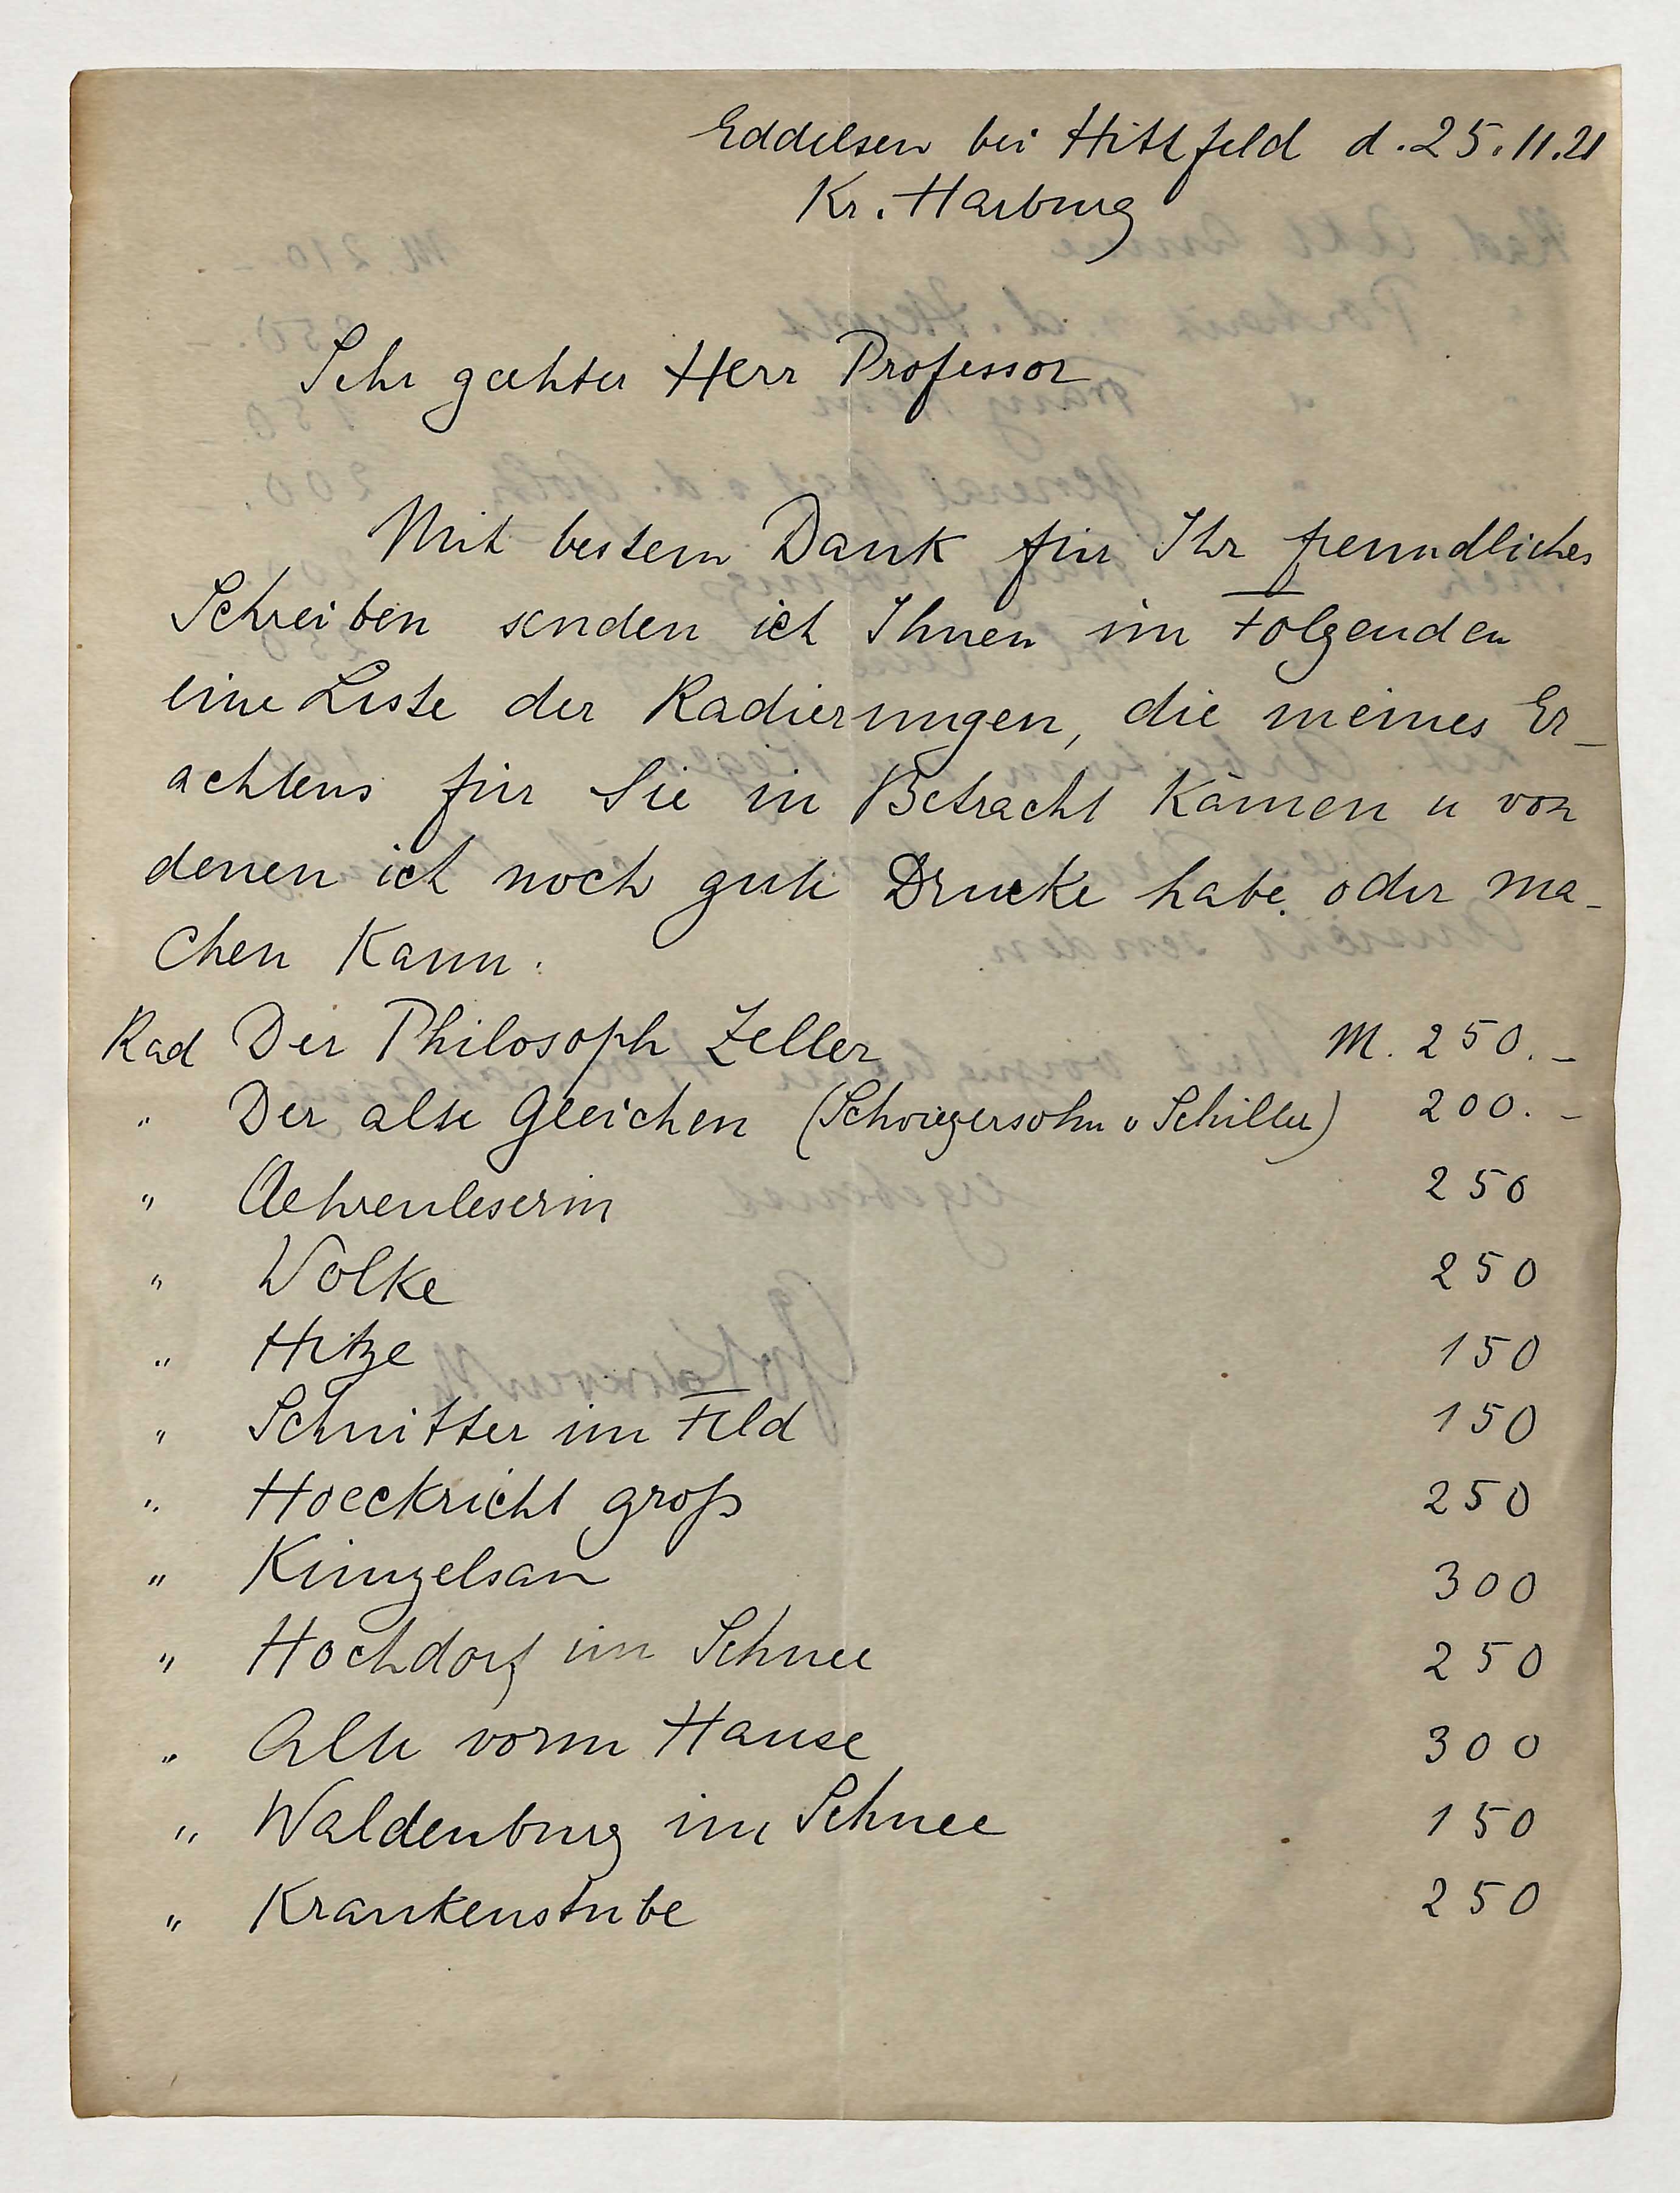 Eddelsen bei Hittfeld d. 25.11.21
Kr. Harburg
Sehr geehrter Herr Professor
Mit bestem Dank für Ihr freundliches
Schreiben senden ich Ihnen im Folgenden
eine Liste der Radierungen, die meines Er-
achtens für Sie in Betracht kämen u von
denen ich noch gute Drucke habe oder ma-
chen kann.
Rad Der Philosoph Zeller M. 250.-
" Der alte Gleichen (Schwiegersohn v Schiller) 200.-
" Aehrenleserin 250
" Wolke 250
" Hitze 150
" Schnitter im Feld 150
" Hoeckricht groß 250
" Künzelsau 300
" Hochdorf im Schnee 250
" Alte vorm Hause 300
" Waldenburg im Schnee 150
" Krankenstube 250